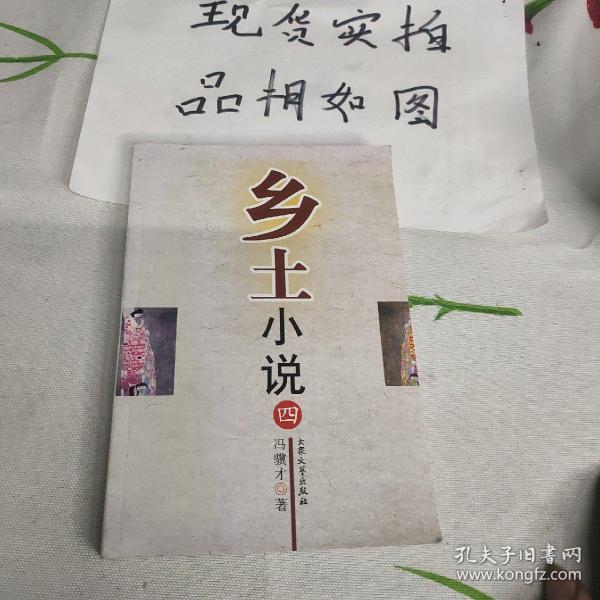 现货实拍
品相如图
乡土
小说
四
冯骥才◎著
大众文艺出版社
孔夫子旧书网
www.kongfz.com